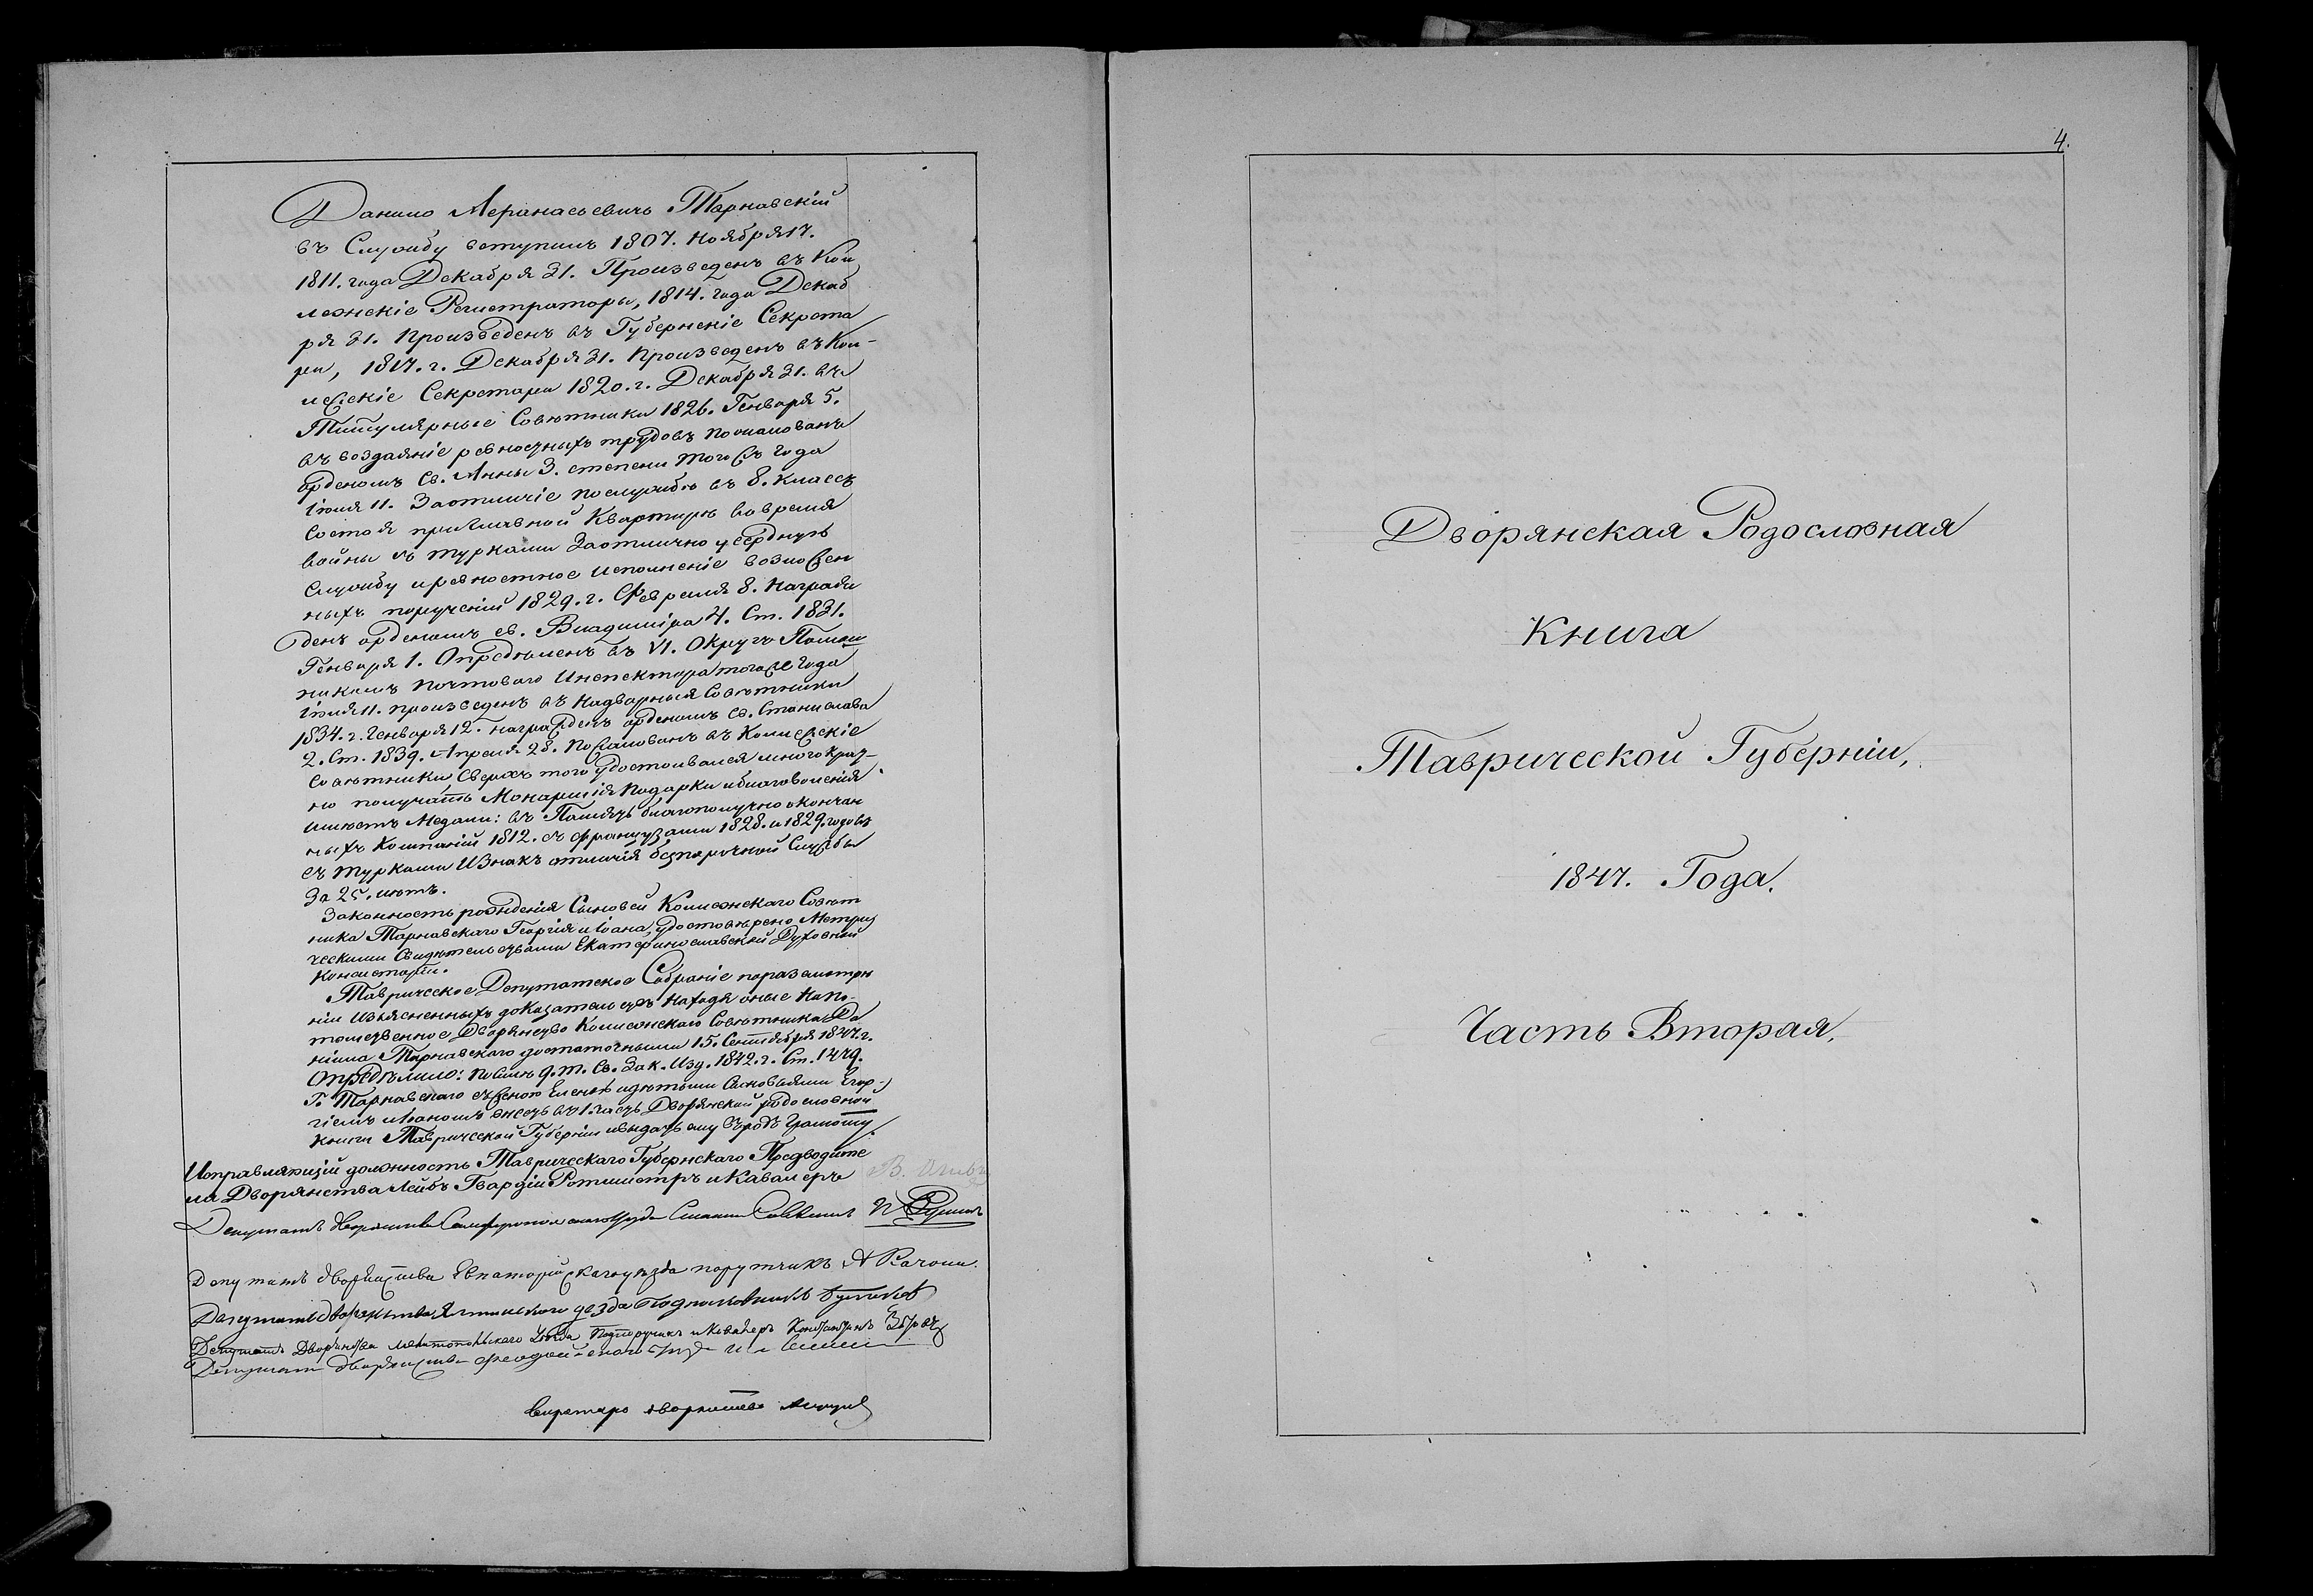 Данило Аѳанасьевичъ Тарнавскій
въ Службу вступилъ 1807. Ноября 17.
1811. года Декабря 31. Произведенъ въ Кол
лежскіе Регистраторы, 1814. года Декаб
ря 31. Произведенъ въ Губернскіе Секрета
ри, 1817. г. Декабря 31. Произведенъ въ Кол-
лежскіе Секретари 1820. г. Декабря 31. въ
Титулярные Совѣтники 1826. Генваря 5.
въ воздаяніе ревностныхъ трудовъ пожалованъ
орденомъ Св. Анны 3. степени того жъ года
Іюля 11. За отличіе по службѣ въ 8. классъ
Состоя при Главной Квартирѣ во время
войны съ турками За отлично усердную
Службу и ревностное исполненіе возложен
ныхъ порученій 1829. г. Февраля 8. Награж
денъ орденомъ св. Владиміра 4. Ст. 1831.
Генваря 1. Опредѣленъ въ VI. Округъ Помощ
никомъ Почтоваго Инспектора того же года
Іюля 11. произведенъ въ Надворныя Совѣтники
1834. г. Генваря 12. награжденъ орденомъ Св. Станислава
2. Ст. 1839. Апреля 28. Пожалованъ въ Коллежскіе
Совѣтники, Сверхъ того удостоивался многократ-
но получать Монаршія Подарки и благоволенія
имѣетъ Медали: въ Память благополучно окончан
ныхъ Компаній 1812. съ французами 1828. и 1829. годовъ
съ турками и Знакъ отличія безпорочной Службы
За 25. лѣтъ.
Законность рожденія Сыновей Коллежскаго Совѣт
ника Тарнавскаго Георгія и Іоана, удостовѣрено Метри
ческими Свидѣтельствами Екатеринославской Духовной
Консисторіи.
Таврическое Депутатское Собраніе по разсмотрѣ
ніи Изъясненныхъ доказательствъ Находя оные На по-
томственное Дворянство Коллежскаго Совѣтника Да
нила Тарнавскаго достаточными 15. Сентября 1847. г.
Опредѣлило: По Силѣ 9. т. Св. Зак. Изд. 1842. г. Ст. 1449.
Г. Тарнавскаго съ женою Еленою и дѣтьми Сыновьями Геор-
гіемъ и Іоаномъ внесть въ 1. часть Дворянской родословной
Книги Таврической Губерніи и выдать ему въ родъ Грамоту.
Исправляющій должность Таврическаго Губернскаго Предводите
ля Дворянства Лейбъ Гвардіи Ротмистръ и Кавалеръ
Депутатъ дворянства Симферопольскаго уѣзда
Депутатъ дворянства Евпаторійскаго уѣзда поручикъ А
Депутатъ дворянства Ялтинскаго уѣзда Подполковникъ
Депутатъ Дворянства Мелитопольскаго Уѣзда Подпоручикъ и Кавалеръ Константинъ
Депутатъ дворянства Ѳеодосійскаго уѣзда
Секретарь дворянства
4.
Дворянская Родословная
Книга
Таврической Губерніи,
1847. Года.
Часть Вторая.